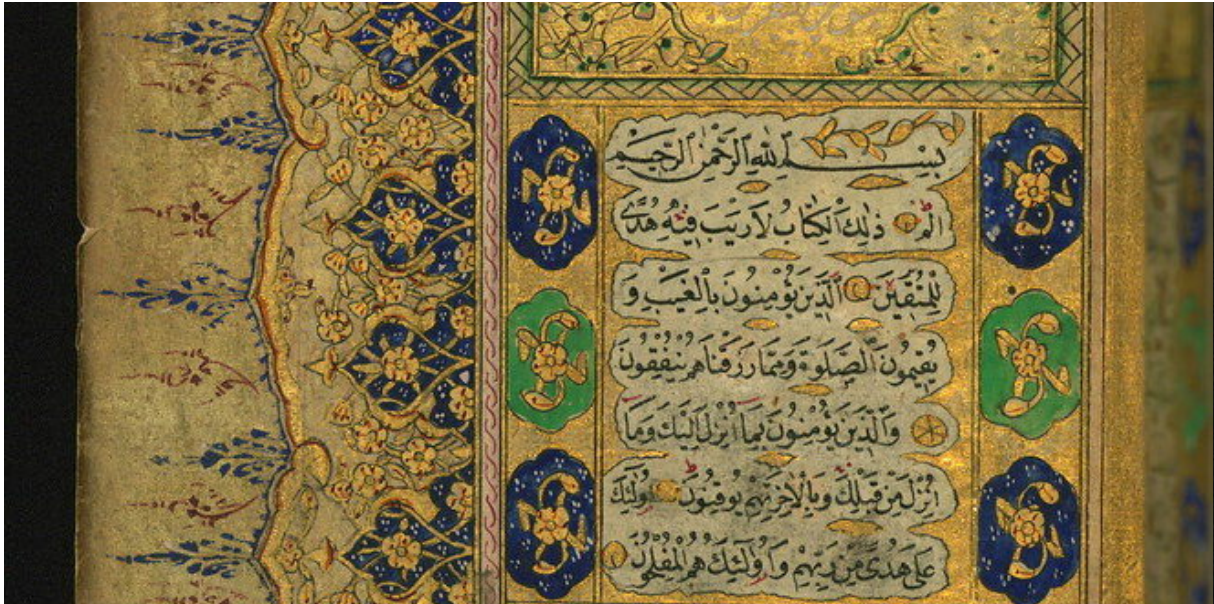 بِسْمِ اللهِ الرَّحْمٰنِ الرَّحِيمِ
الم ذٰلِكَ الْكِتَابُ لَا رَيْبَ فِيهِ هُدًى
لِلْمُتَّقِينَ الَّذِينَ يُؤْمِنُونَ بِالْغَيْبِ وَ
يُقِيمُونَ الصَّلٰوةَ وَمِمَّا رَزَقْنَاهُمْ يُنْفِقُونَ
وَالَّذِينَ يُؤْمِنُونَ بِمَا اُنْزِلَ اِلَيْكَ وَمَا
اُنْزِلَ مِنْ قَبْلِكَ وَبِالْاٰخِرَةِ هُمْ يُوقِنُونَ اُولٰئِكَ
عَلٰى هُدًى مِنْ رَبِّهِمْ وَاُولٰئِكَ هُمُ الْمُفْلِحُونَ